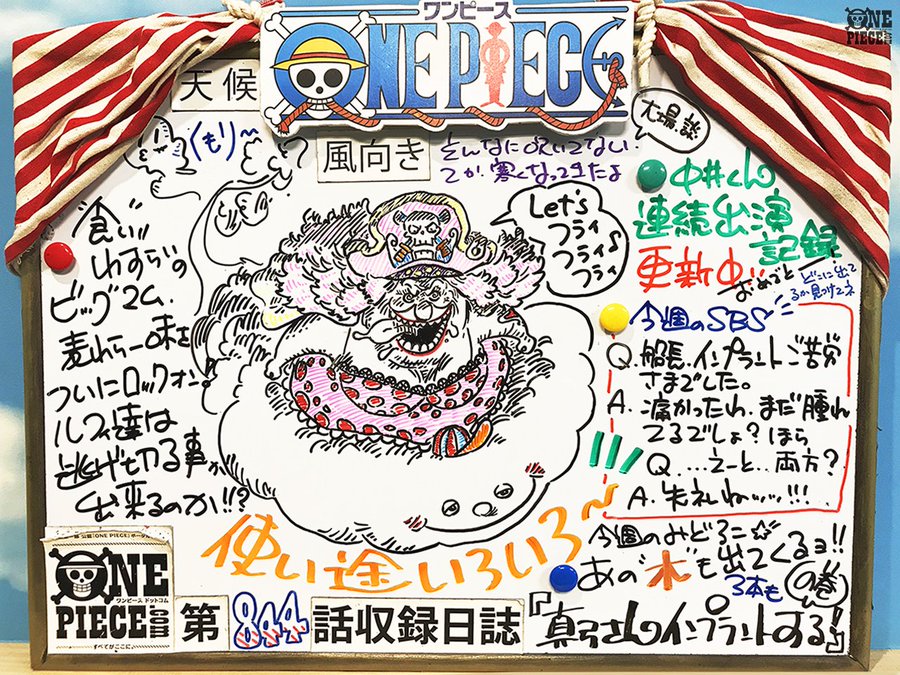 ワンピース
ONE PIECE
ONE
PIECE.com
天候
くもり~
風向き
そんなに吹いてない.
てか寒くなってきたよ
大場談
Let's
フライ
フライ♪
フライ
中井くん
連続出演
記録
更新中!!
おめでと
どこに出て
るか見つけてネ
"食い"
わずらいの
ビッグマム.
麦わら一味を
ついにロックオン。
ルフィ達は
逃げ切る事が
出来るのか!!?
今週のSBS
Q. 船長、インプラントご苦労
さまでした。
A. 痛かったわ。まだ腫れ
てるでしょ?ほら
Q ....えーと..両方?
A. 失礼ねッッ!!!
今週のみどころ☆
あの"木"も出てくるョ!!
3本も
の巻
使い途いろいろ~
ONE
PIECE
.com
ワンピース ドットコム
すべてがここに♪
第844話収録日誌
『真弓さんのインプラントする!』